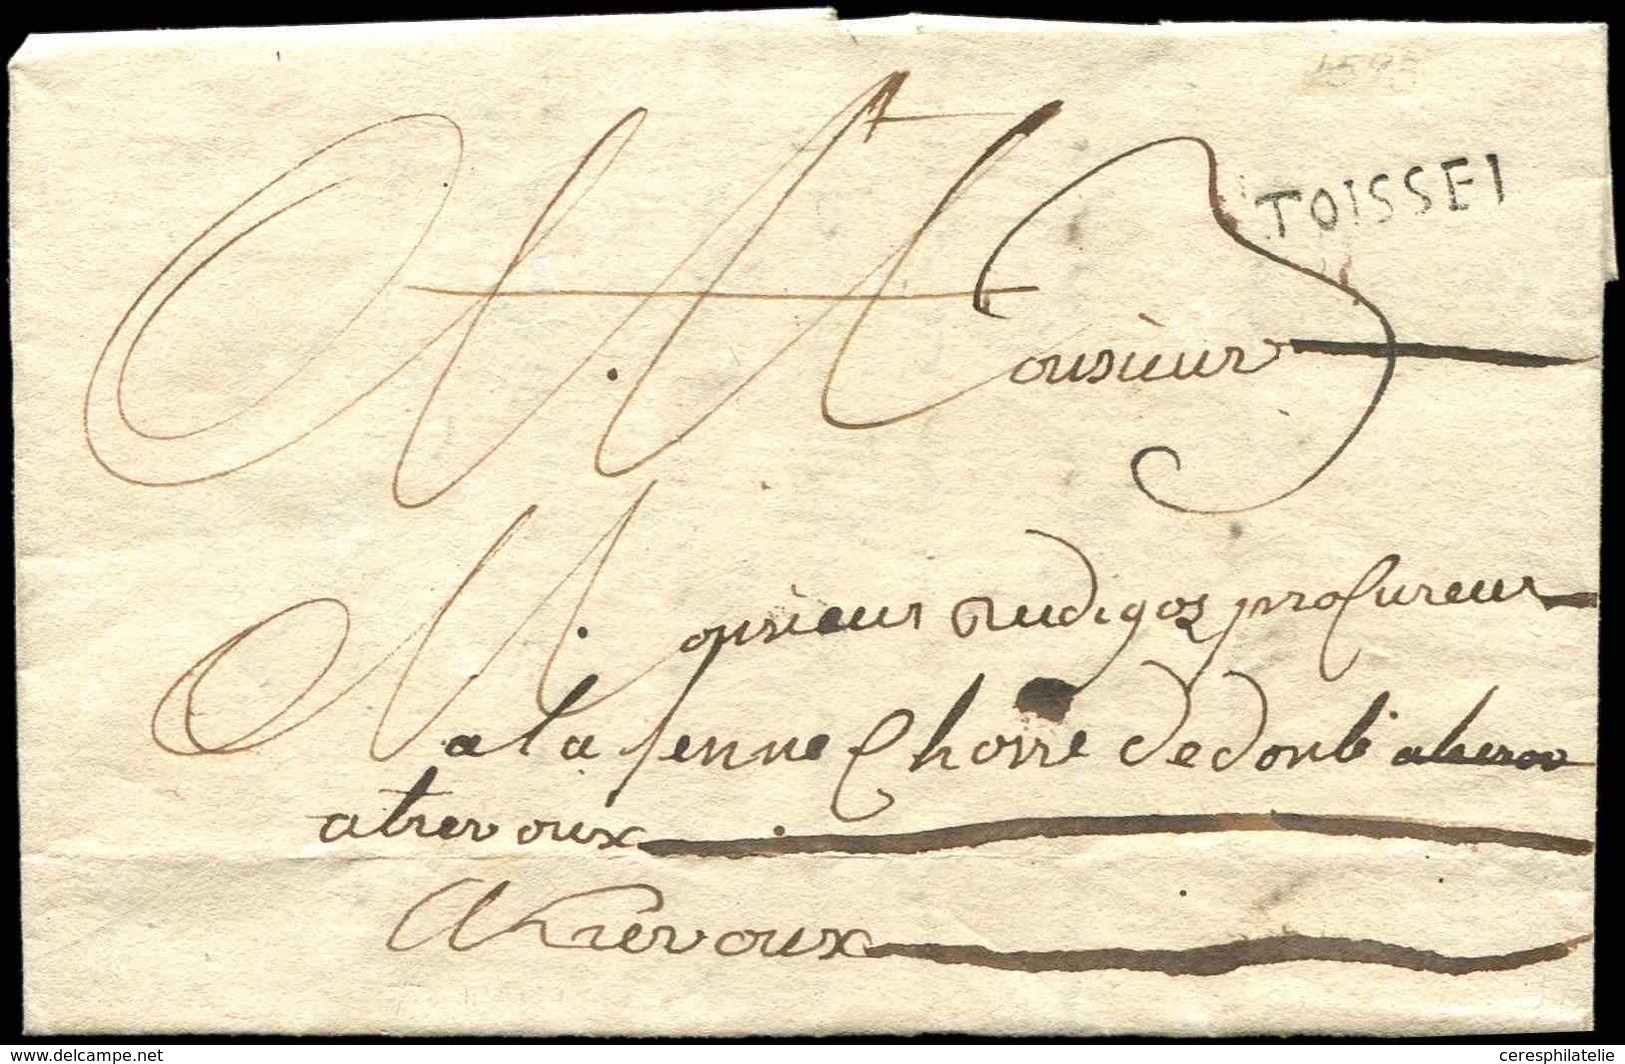 TOISSEI
Monsieur
Monsieur Rudigoz procureur
a la senne Chorre de donbe
a trevoux
A Trevoux
www.delcampe.net
ceresphilatelie